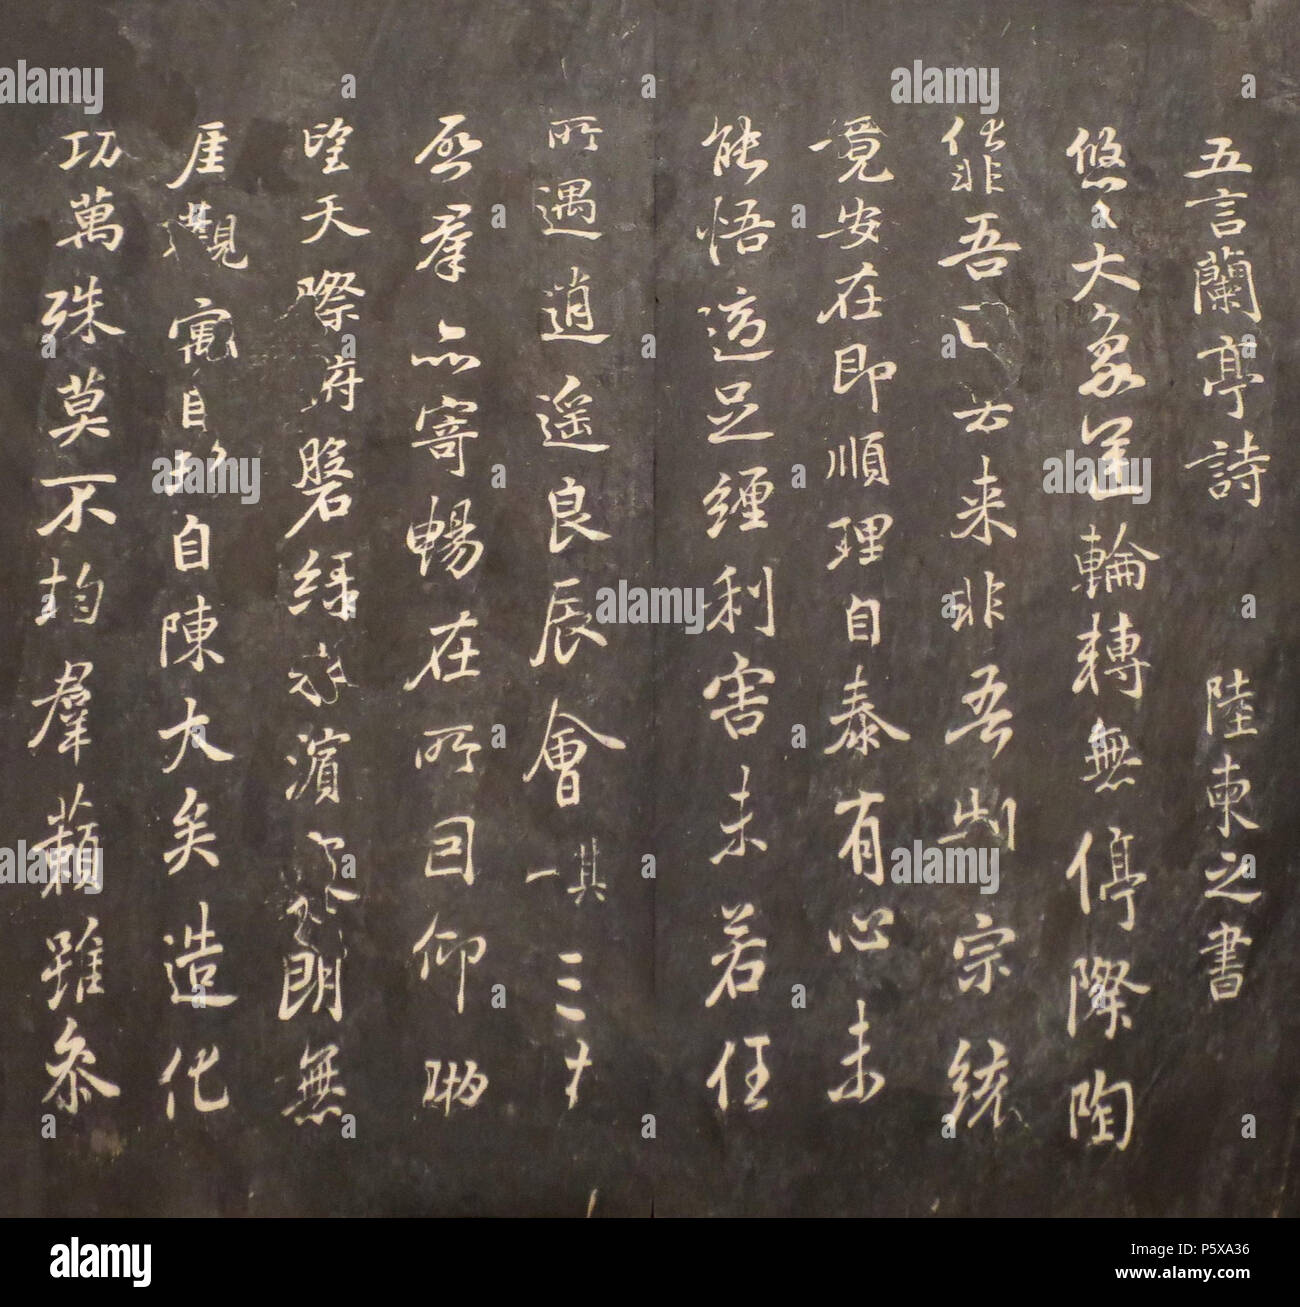 五言蘭亭詩 陸柬之書
悠〻大象運輪轉無停際陶
化非吾去来非吾制宗統
竟安在即順理自泰有心未
能悟適足纏利害未若任
所遇逍遥良辰會其一三
啓羣品寄暢在所因仰眺
望天際俯磐緑水濱寥朗無
厓觀寓目理自陳大矣造化
功萬殊莫不均羣籟雖參
alamy
Image ID: P5XA36
www.alamy.com